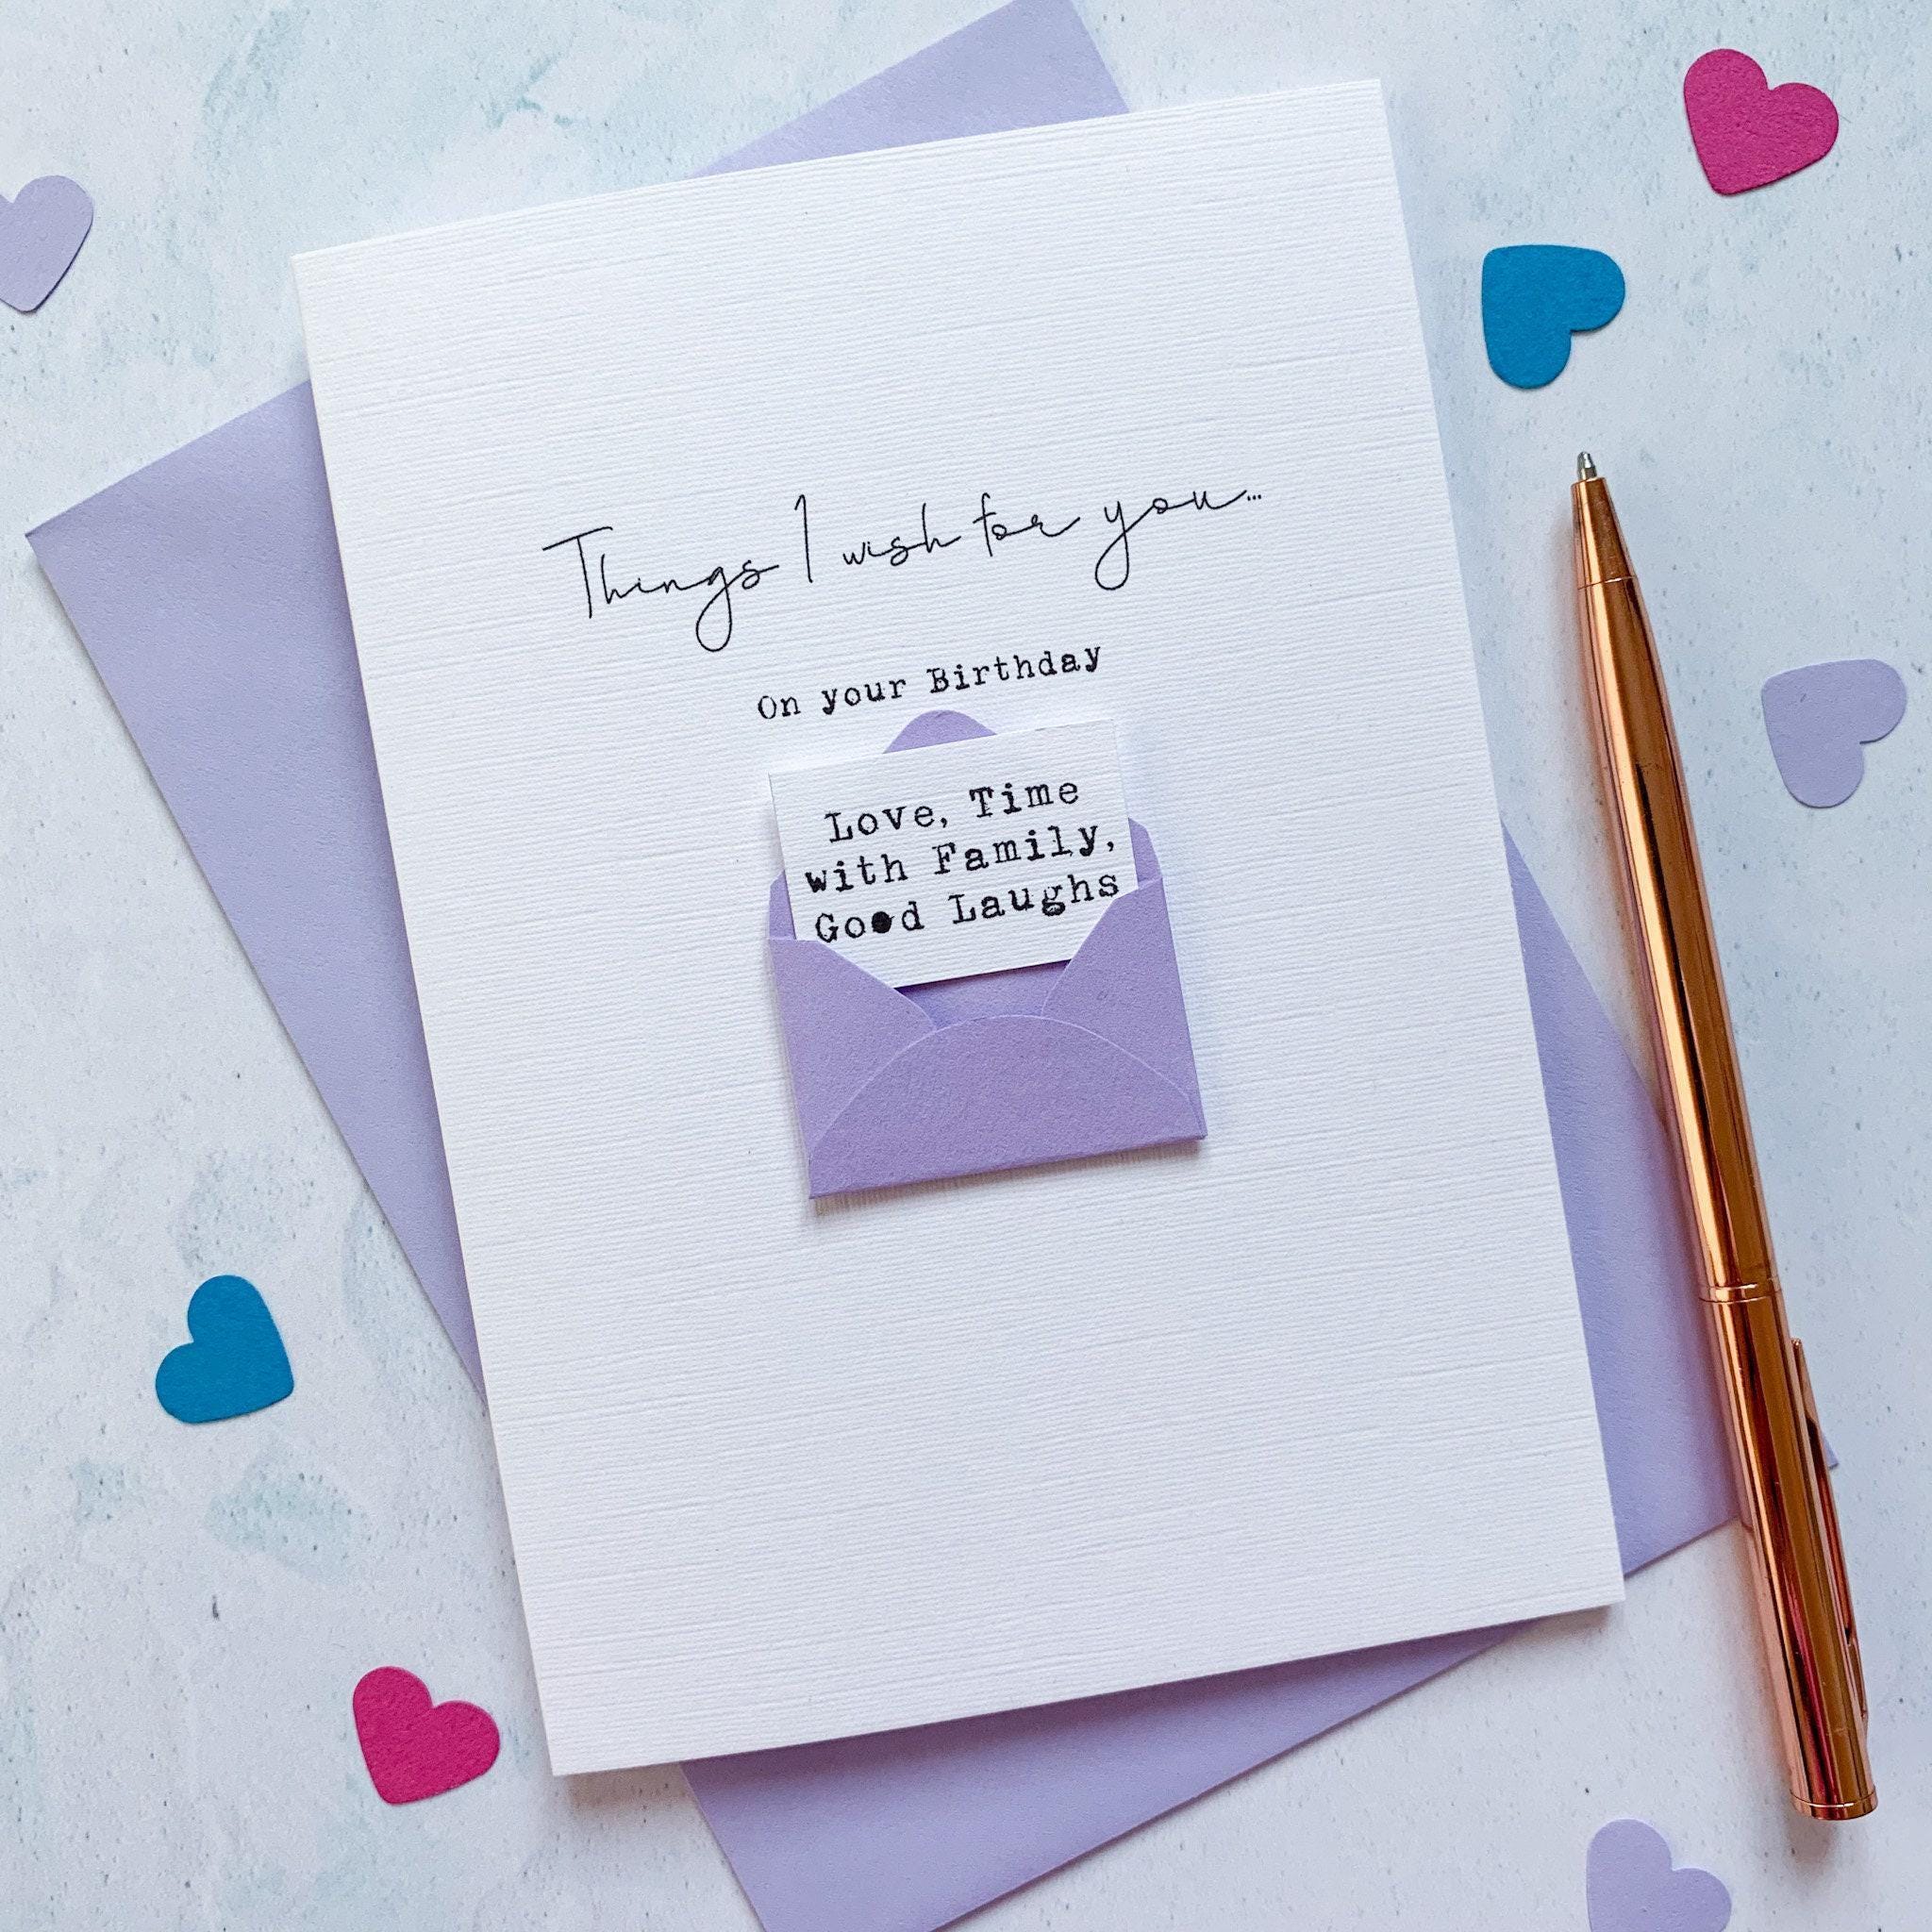 Things I wish for you...
On your Birthday
Love, Time
with Family,
Good Laughs